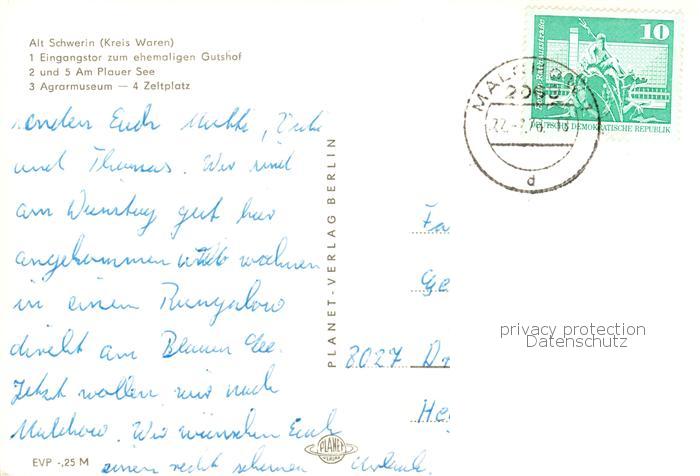 Alt Schwerin (Kreis Waren)
1 Eingangstor zum ehemaligen Gutshof
2 und 5 Am Plauer See
3 Agrarmuseum — 4 Zeltplatz
senden Euch Mutti,
und Thomas. Wir sind
am Dienstag gut hier
angekommen und wohnen
in einem Bungalow
direkt am Plauer See.
Jetzt wollen wir nach
Malchow. Wir wünschen Euch
einen recht schönen Urlaub.
EVP -,25 M
PLANET-VERLAG BERLIN
PLANET
VERLAG
10
DEUTSCHE DEMOKRATISCHE REPUBLIK
MALCHOW
d
Fa
Ge
8027 Dr
He
privacy protection
Datenschutz